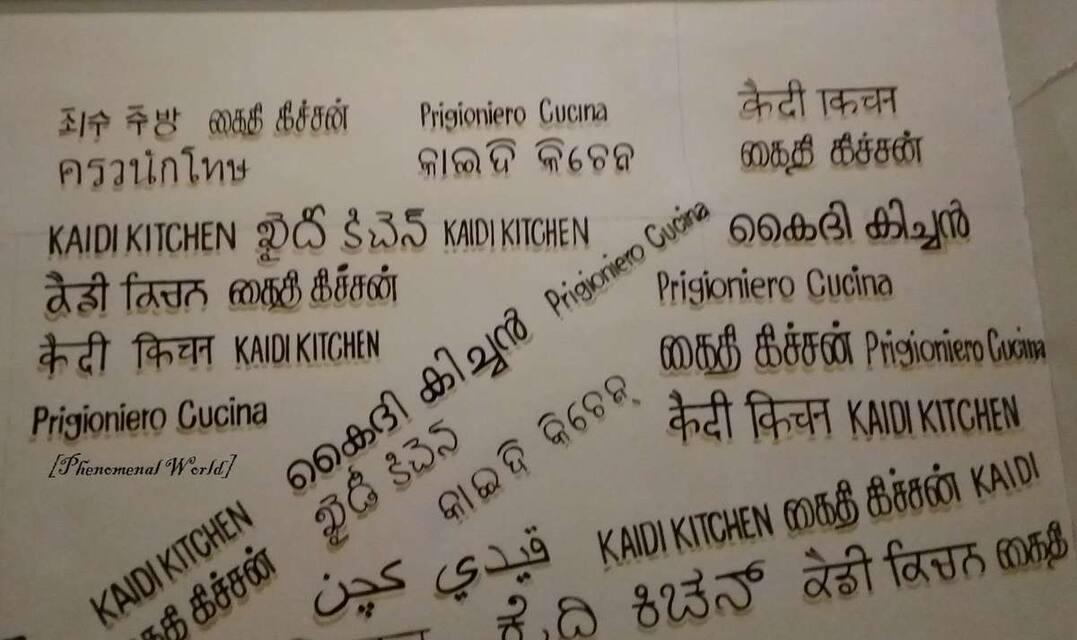 죄수 주방 கைதி கிச்சன் Prigioniero Cucina कैदी किचन
ครัวนักโทษ କାଇଦି କିଚେନ୍ கைதி கிச்சன்
KAIDI KITCHEN ఖైదీ కిచెన్ KAIDI KITCHEN Prigioniero Cucina കൈദി കിച്ചൻ
ਕੈਡੀ ਕਿਚਨ கைதி கிச்சன் Prigioniero Cucina
कैदी किचन KAIDI KITCHEN கைதி கிச்சன் Prigioniero Cucina
Prigioniero Cucina കൈദി കിച്ചൻ कैदी किचन KAIDI KITCHEN
[Phenomenal World]
ఖైదీ కిచెన్
କାଇଦି କିଚେନ୍
KAIDI KITCHEN KAIDI KITCHEN கைதி கிச்சன் KAIDI
கைதி கிச்சன் قيدي كچن ಕೈದಿ ಕಿಚೆನ್ ਕੈਡੀ ਕਿਚਨ கைதி